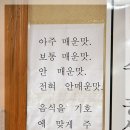 아주 매운맛.
보통 매운맛.
안 매운맛.
전혀 안매운맛.
음식을 기호
에 맞게 주